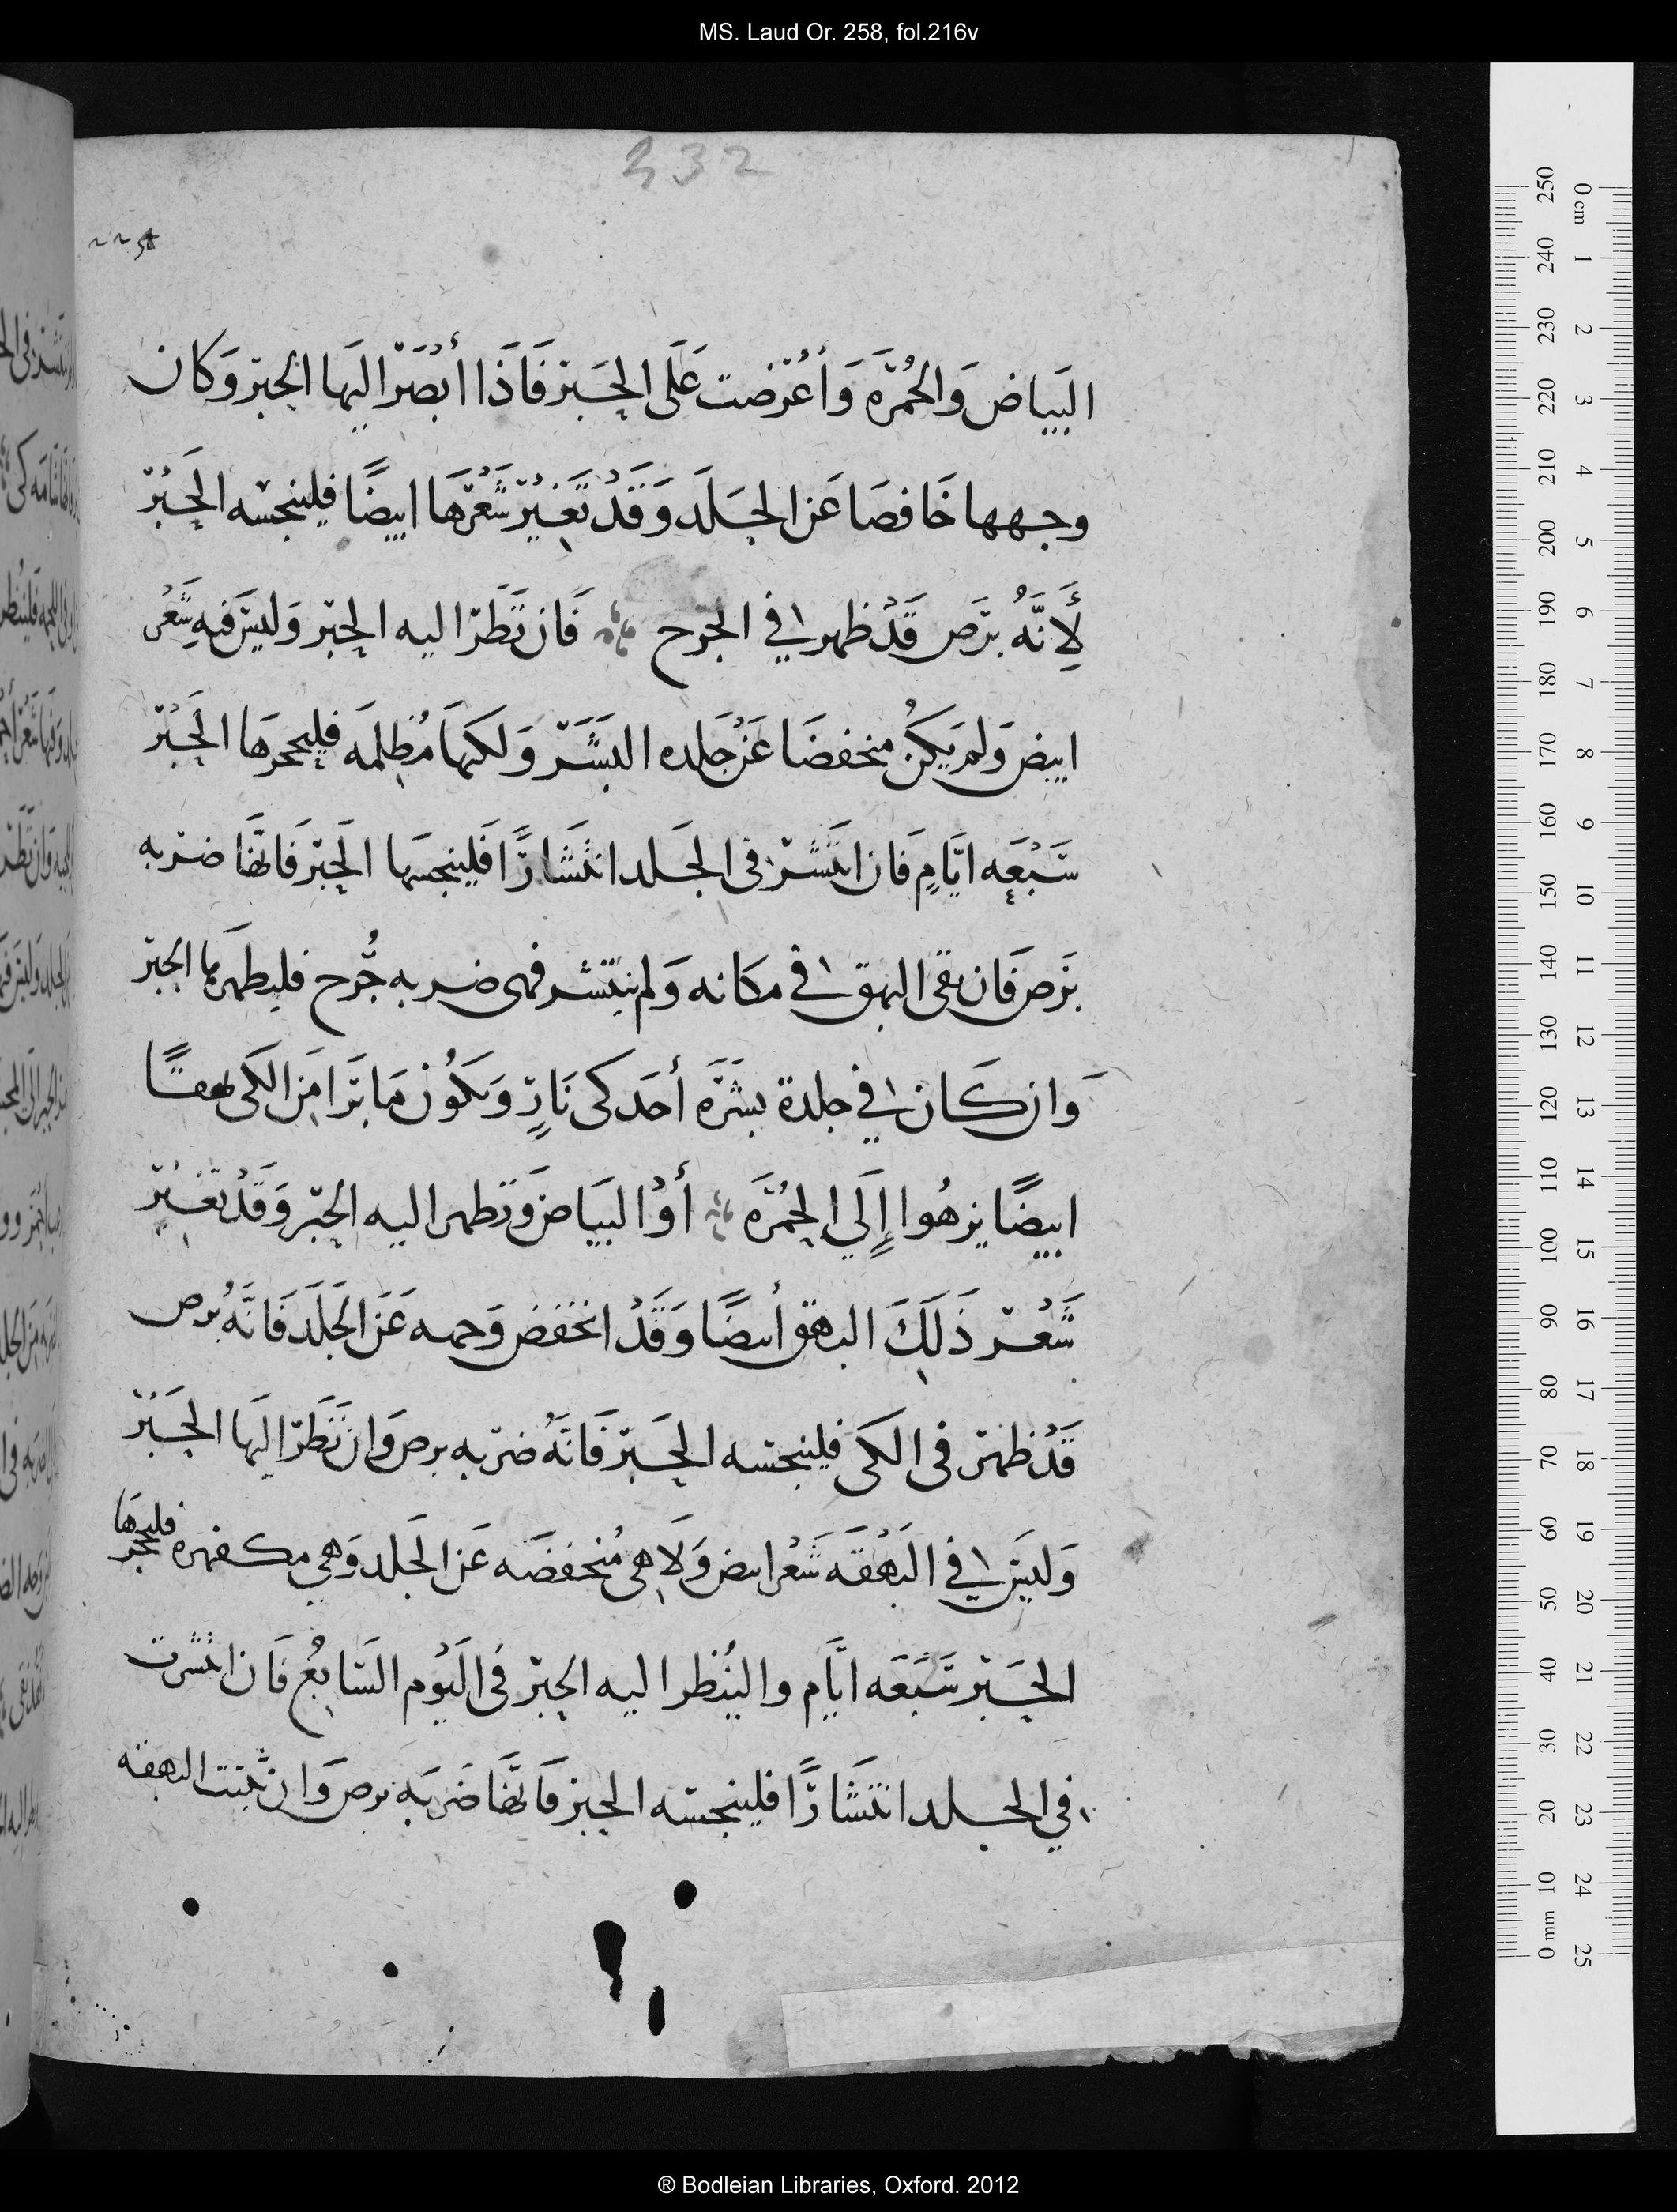 MS. Laud Or. 258, fol.216v
332
البَيَاض وَالحُمرَه وَأعْتَرضت عَلَى الحَبر فَاذَا أبْصَر اليَها الحبر وَكان
وجهها خَافضَا عَن الجَلَد وَقَدْ تَغيرَ شَعْرهَا ابيضًا فلينجسه الحَبْر
لِأَنَّهُ بَرَص قَدْ ظهر في الجُرح فَان نَظَر اليه الحبر وَليسَ فيهِ شَعْر
ابيض وَلم يَكُن منخفضَا عَن جَلده البَشَر وَلكنهَا مُظلمَه فليحجرهَا الحَبْر
سَبْعَه ايَّامٍ فَان انتَشَر فى الجَلد انتشَارًا فَلينجسَها الحَبر فَانهَّا ضربه
بَرص فَان بقى البهق في مكانه وَلم ينتَشر فهى ضربه جُرح فليطهرها الحبر
وَان كَان في جلدة بشَرَه أحَد كى نَارٍ وَيكُون مَا بَرَا مَن الكَى بهقًا
ابيضًا يزهُوا إِلَي الحُمرَه أوْ البَيَاض وَنَظر اليه الحَبر وَقَدْ تغير
شَعْر ذَلِكَ البهق أبيضًا وَقَدْ انخفض وَجهه عَن الجَلَد فَانَّهُ برص
قَدْ ظهر فى الكَى فلينجسه الحَبر فَانَّهُ ضربه برص وَان نَظَر اليَها الحَبْر
وَليسَ في البَهْقَه شَعْر ابيض وَلَا هى مُنخفضَه عَن الجَلد وَهي مكفهره فليحجرهَا
الحَبر سَبْعَه ايَّام والينُظر اليه الحبر فى اليَوْم السَابعُ فَان انتشرت
في الجلد انتشَارًا فلينجسه الحبر فَانهَّا ضَربَه برص وَان ثبتت البهقه
® Bodleian Libraries, Oxford. 2012